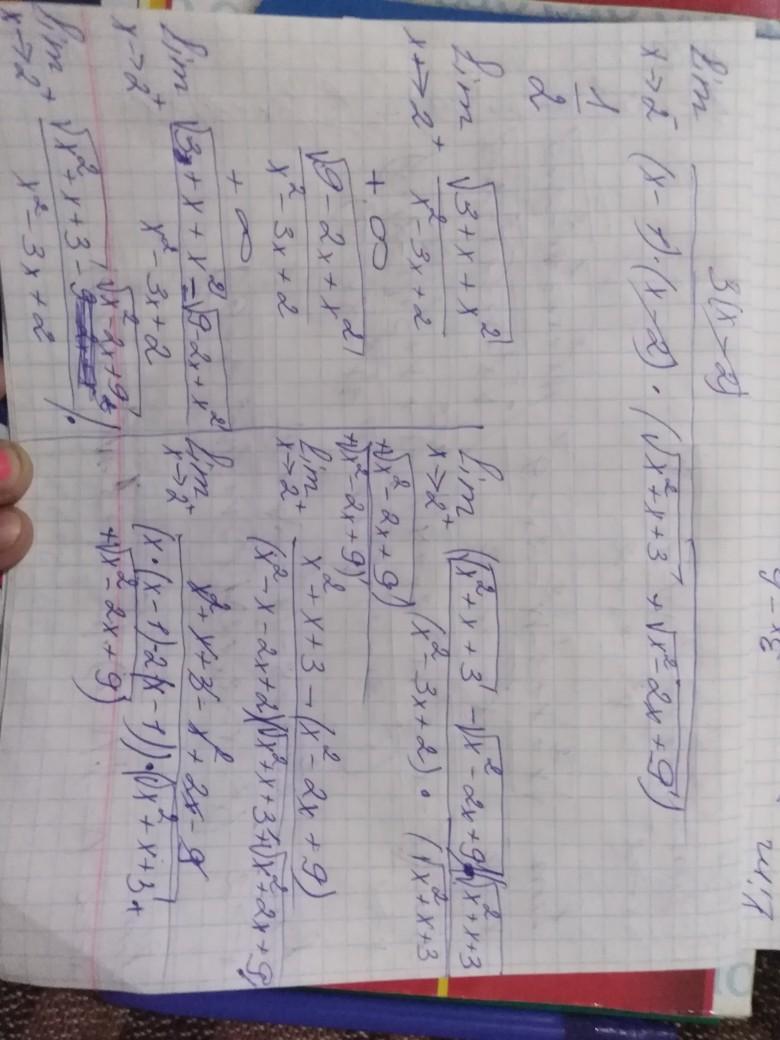 lim x→2⁻ 3(x-2) / (x-1)·(x-2)·(√x²+x+3 + √x²-2x+9)
1/2
lim x→2⁺ √3+x+x² / x²-3x+2
+∞
√9-2x+x² / x²-3x+2
+∞
lim x→2⁺ √3+x+x² - √9-2x+x² / x²-3x+2
lim x→2⁺ √x²+x+3 - √x²-2x+9 / x²-3x+2
lim x→2⁺ (√x²+x+3 - √x²-2x+9)(√x²+x+3
+√x²-2x+9) / (x²-3x+2)·(√x²+x+3
+√x²-2x+9)
lim x→2⁺ x²+x+3-(x²-2x+9) / (x²-x-2x+2)(√x²+x+3+√x²+2x+9)
lim x→2⁺ x²+x+3-x²+2x-9 / (x·(x-1)-2(x-1))·(√x²+x+3+
+√x²-2x+9)